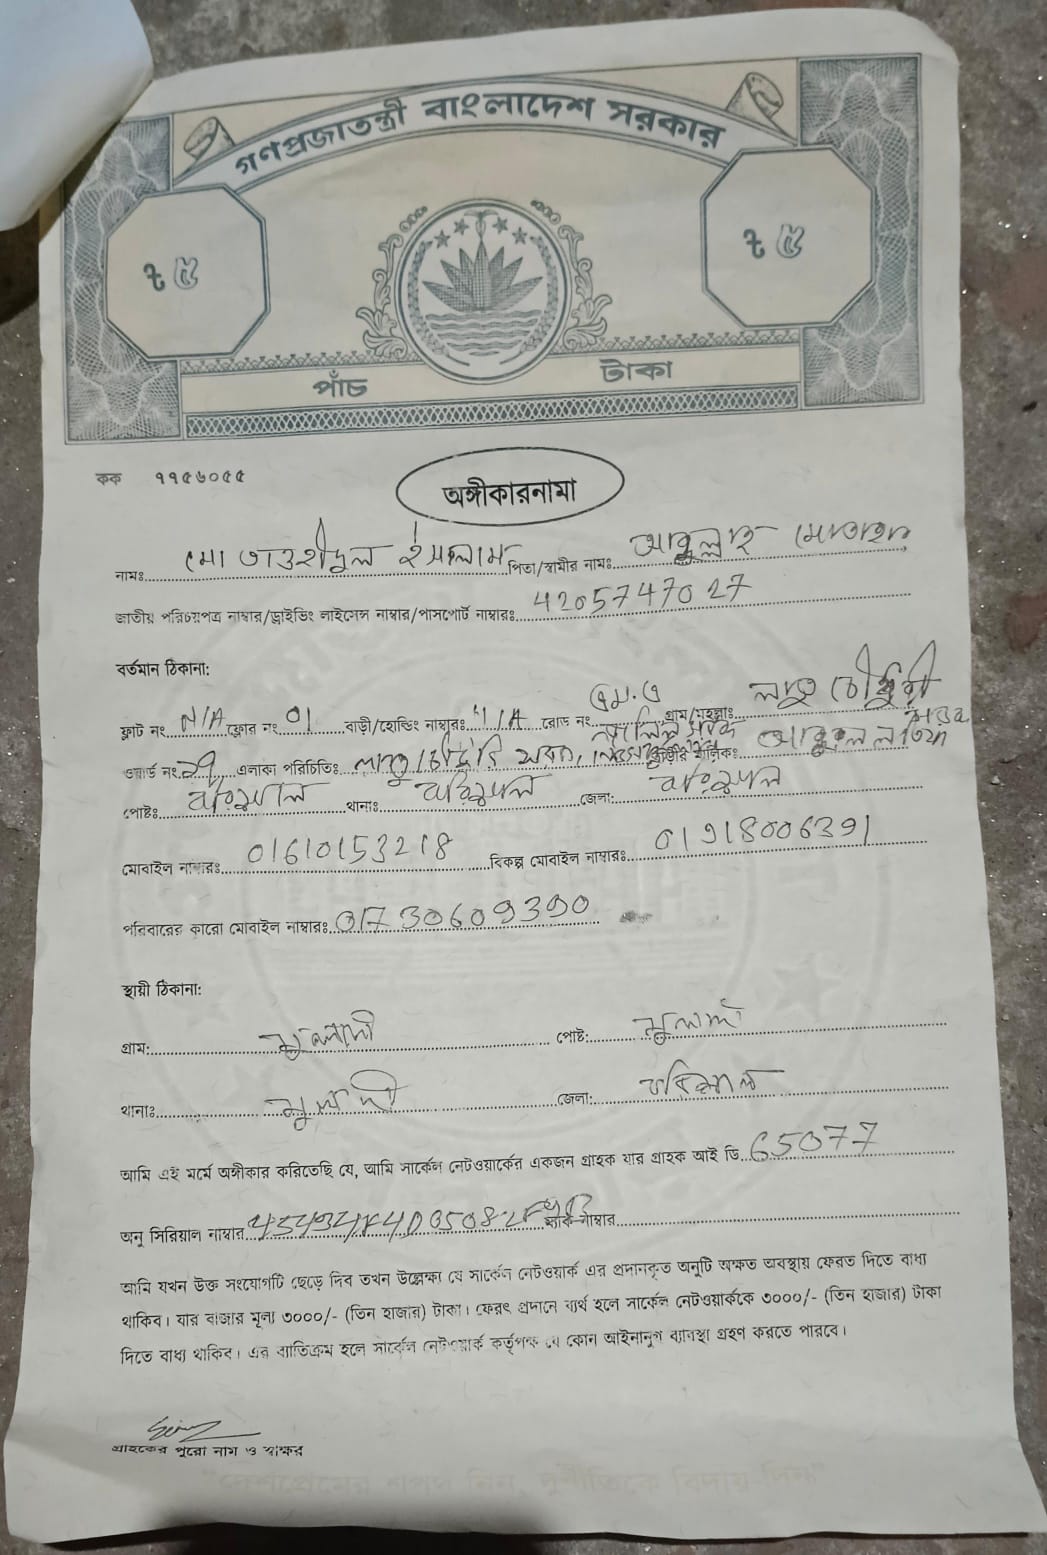 গণপ্রজাতন্ত্রী বাংলাদেশ সরকার
৳ ৫ ৳ ৫
পাঁচ টাকা
কক ৭৭৫৬০৫৫
অঙ্গীকারনামা
নামঃ মো তাওহীদুল ইসলাম পিতা/স্বামীর নামঃ আব্দুল্লাহ
জাতীয় পরিচয়পত্র নাম্বার/ড্রাইভিং লাইসেন্স নাম্বার/পাসপোর্ট নাম্বারঃ 4205747027
বর্তমান ঠিকানা:
ফ্লাট নং N/A ফ্লোর নং 01 বাড়ী/হোল্ডিং নাম্বারঃ N/A রোড নং গ্রাম/মহল্লাঃ চৌধুরী
ওয়ার্ড নং এলাকা পরিচিতিঃ বাড়ীর মালিকঃ
পোষ্টঃ বরিশাল থানাঃ বরিশাল জেলা: বরিশাল
মোবাইল নাম্বারঃ 01610153218 বিকল্প মোবাইল নাম্বারঃ 01918006391
পরিবারের কারো মোবাইল নাম্বারঃ 01730609390
স্থায়ী ঠিকানা:
গ্রাম: মুলাদী পোষ্ট: মুলাদী
থানাঃ মুলাদী জেলা: বরিশাল
আমি এই মর্মে অঙ্গীকার করিতেছি যে, আমি সার্কেল নেটওয়ার্কের একজন গ্রাহক যার গ্রাহক আই ডি 65077
অনু সিরিয়াল নাম্বার ম্যাক নাম্বার
আমি যখন উক্ত সংযোগটি ছেড়ে দিব তখন উল্লেক্ষ্য যে সার্কেল নেটওয়ার্ক এর প্রদানকৃত অনুটি অক্ষত অবস্থায় ফেরত দিতে বাধ্য
থাকিব। যার বাজার মূল্য ৩০০০/- (তিন হাজার) টাকা। ফেরৎ প্রদানে ব্যর্থ হলে সার্কেল নেটওয়ার্ককে ৩০০০/- (তিন হাজার) টাকা
দিতে বাধ্য থাকিব। এর ব্যতিক্রম হলে সার্কেল নেটওয়ার্ক কর্তৃপক্ষ যে কোন আইনানুগ ব্যবস্থা গ্রহণ করতে পারবে।
গ্রাহকের পুরো নাম ও স্বাক্ষর
"দেশপ্রেমের শপথ নিন, দুর্নীতিকে বিদায় দিন"